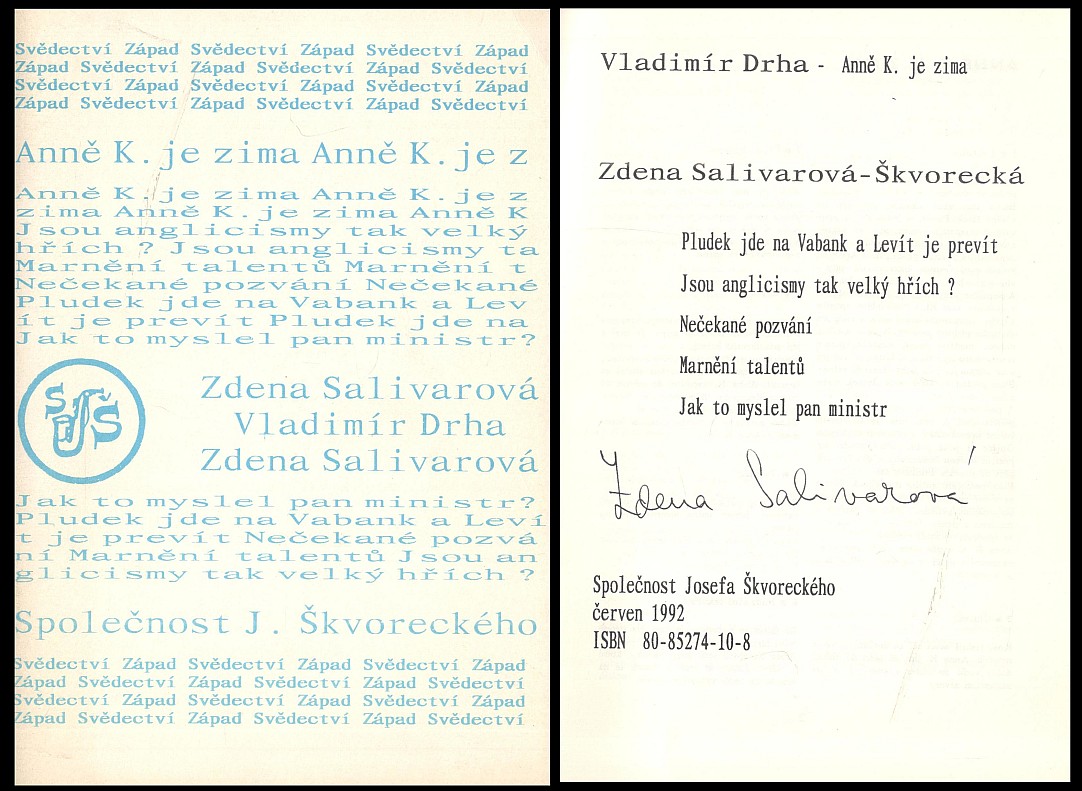 Svědectví Západ Svědectví Západ Svědectví Západ
Západ Svědectví Západ Svědectví Západ Svědectví
Svědectví Západ Svědectví Západ Svědectví Západ
Západ Svědectví Západ Svědectví Západ Svědectví
Anně K. je zima Anně K. je z
Anně K. je zima Anně K. je z
zima Anně K. je zima Anně K
Jsou anglicismy tak velký
hřích ? Jsou anglicismy ta
Marnění talentů Marnění t
Nečekané pozvání Nečekané
Pludek jde na Vabank a Lev
ít je prevít Pludek jde na
Jak to myslel pan ministr?
SJS
Zdena Salivarová
Vladimír Drha
Zdena Salivarová
Jak to myslel pan ministr?
Pludek jde na Vabank a Leví
t je prevít Nečekané pozvá
ní Marnění talentů Jsou an
glicismy tak velký hřích ?
Společnost J. Škvoreckého
Svědectví Západ Svědectví Západ Svědectví Západ
Západ Svědectví Západ Svědectví Západ Svědectví
Svědectví Západ Svědectví Západ Svědectví Západ
Západ Svědectví Západ Svědectví Západ Svědectví
Vladimír Drha - Anně K. je zima
Zdena Salivarová-Škvorecká
Pludek jde na Vabank a Levít je prevít
Jsou anglicismy tak velký hřích ?
Nečekané pozvání
Marnění talentů
Jak to myslel pan ministr
Zdena Salivarová
Společnost Josefa Škvoreckého
červen 1992
ISBN 80-85274-10-8